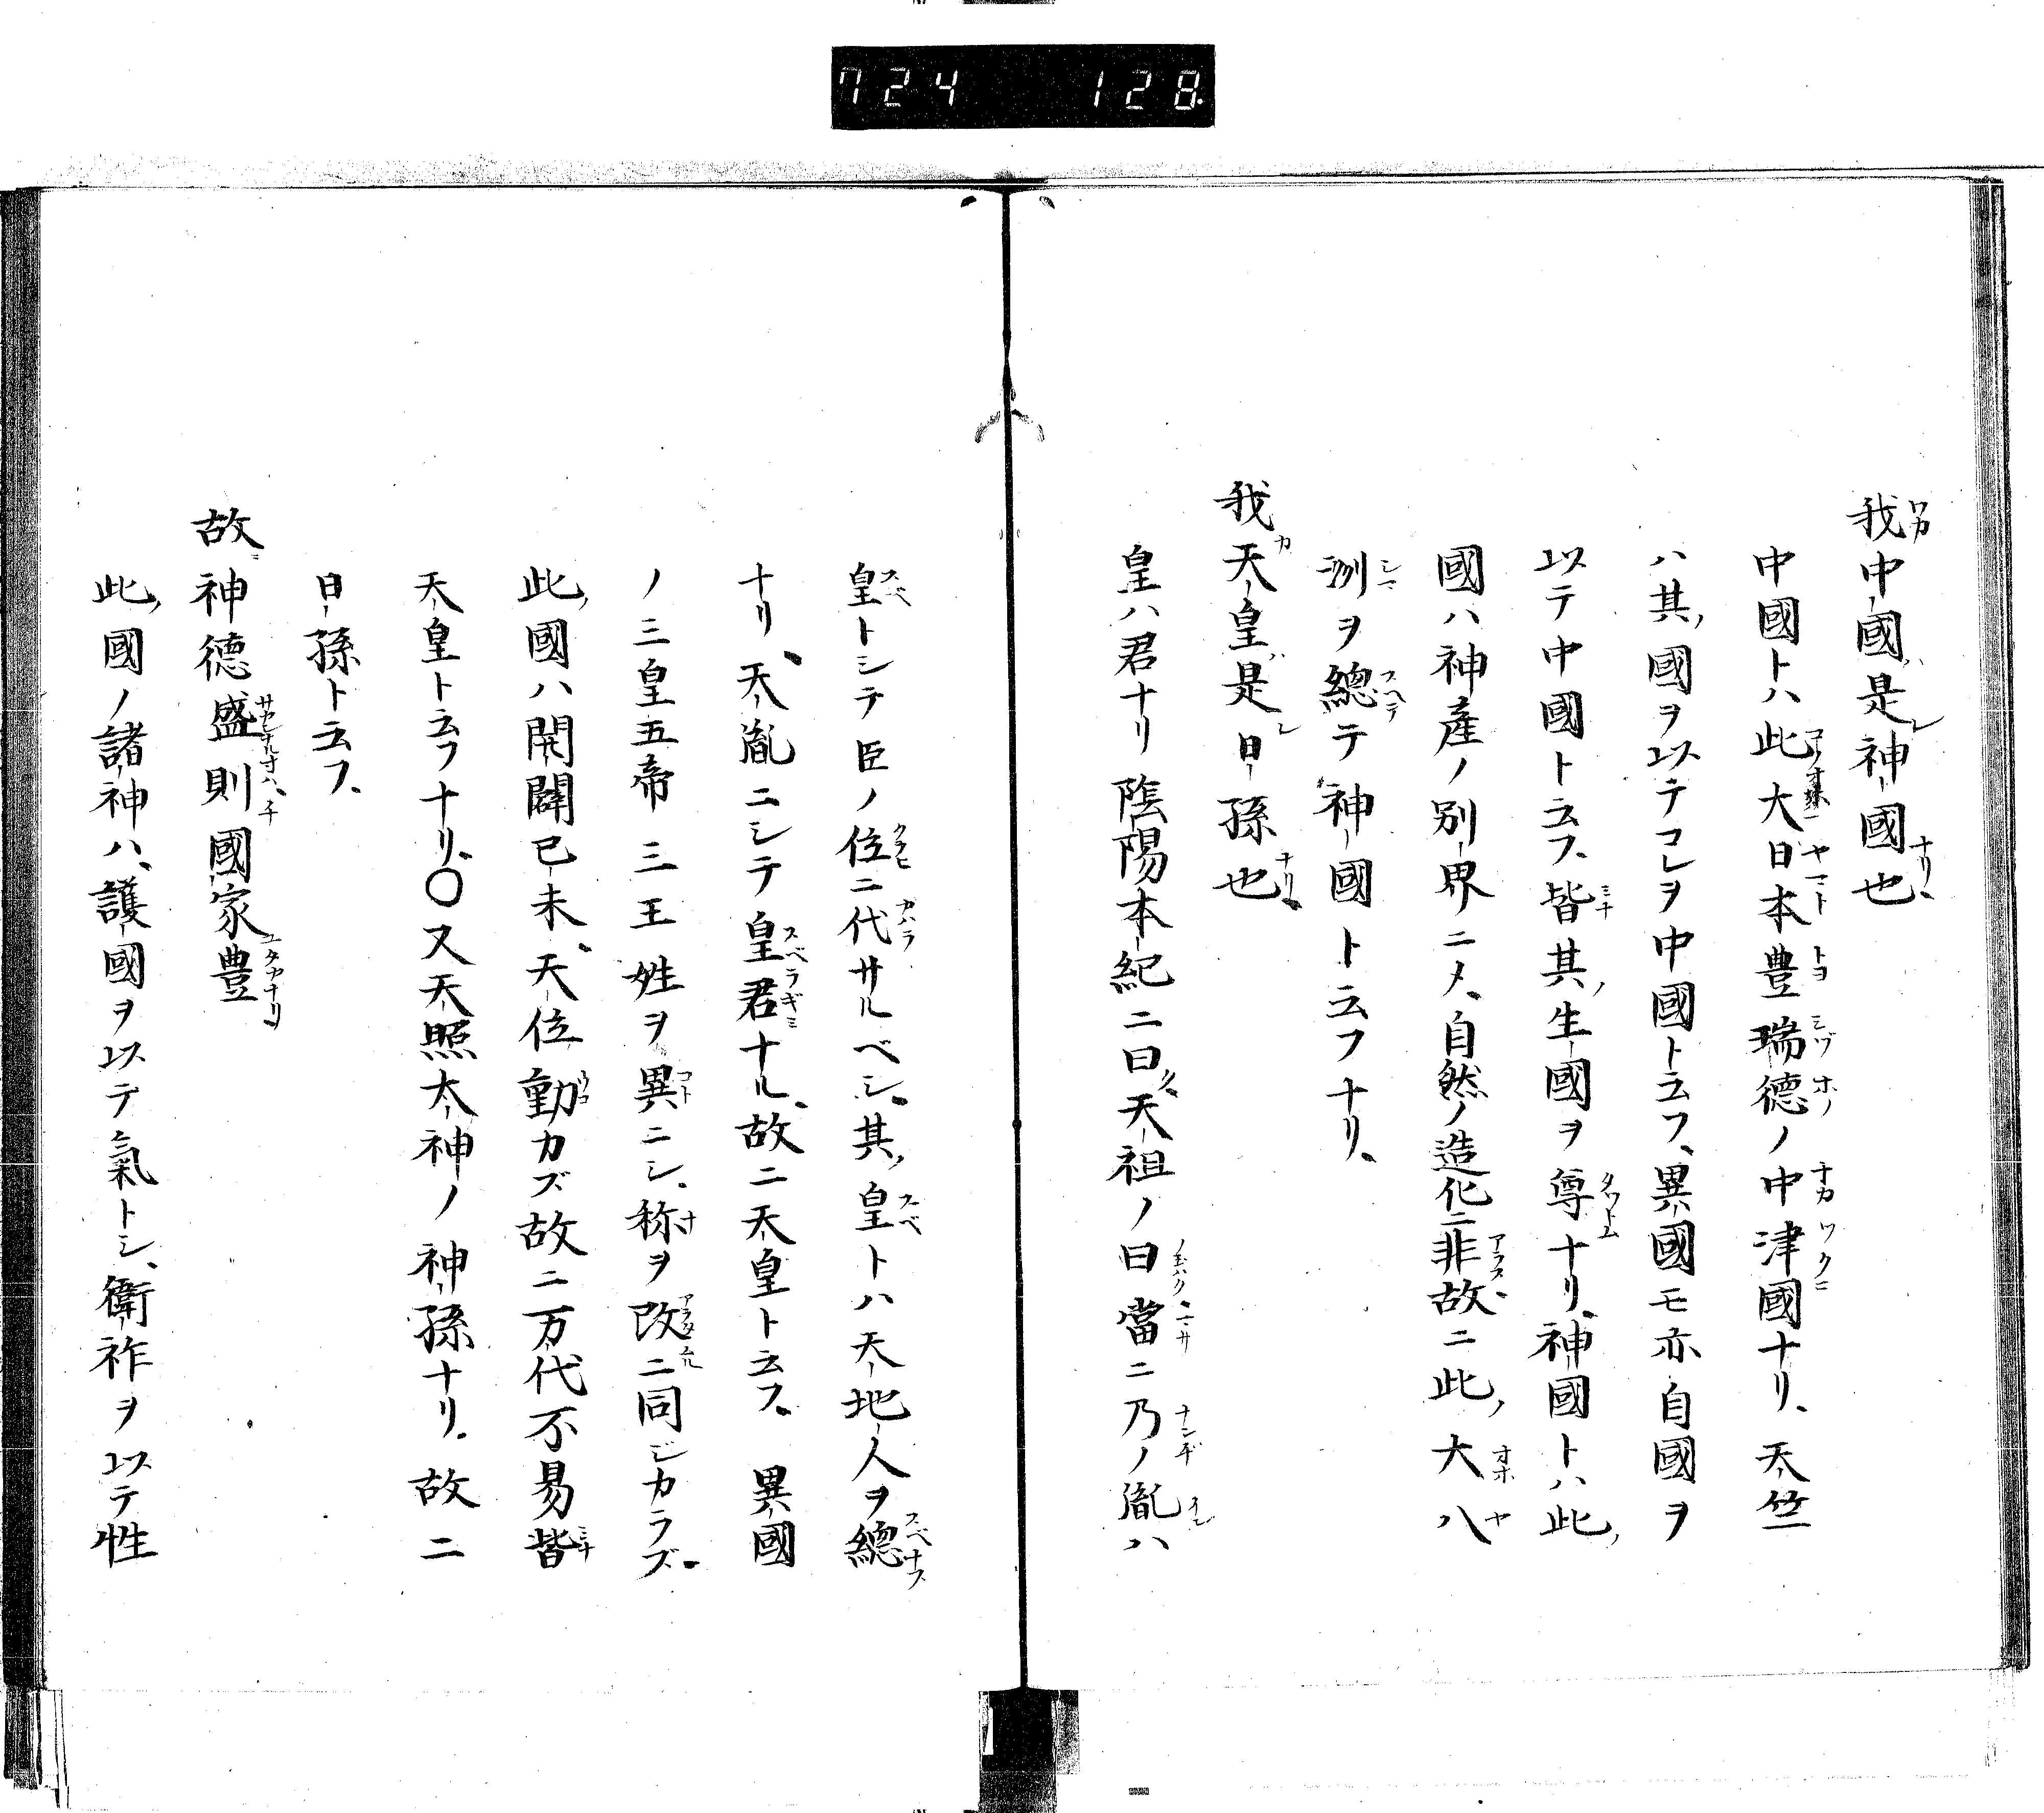 724 128
我中國是神國也
中國トハ此大日本豊瑞徳ノ中津國ナリ、天竺
ハ其國ヲ以テコレヲ中國ト云フ、異國モ亦自國ヲ
以テ中國ト云フ、皆其生國ヲ尊ナリ、神國トハ此
國ハ神産ノ別界ニメ、自然ノ造化ニ非故ニ此大八
洲ヲ總テ神國ト云フナリ、
我天皇是日孫也
皇ハ君ナリ陰陽本紀ニ曰天祖ノ曰當ニ乃ノ胤ハ
皇トシテ臣ノ位ニ代サルベシ、其皇トハ天地人ヲ總
ナリ、天胤ニシテ皇君ナル、故ニ天皇ト云フ、異國
ノ三皇五帝三王姓ヲ異ニシ、称ヲ改ニ同ジカラズ、
此國ハ開闢已未、天位動カズ故ニ万代不易皆
天皇ト云フナリ、〇又天照太神ノ神孫ナリ、故ニ
日孫ト云フ、
故神徳盛則國家豊
此國ノ諸神ハ、護國ヲ以テ氣トシ、衛祚ヲ以テ性